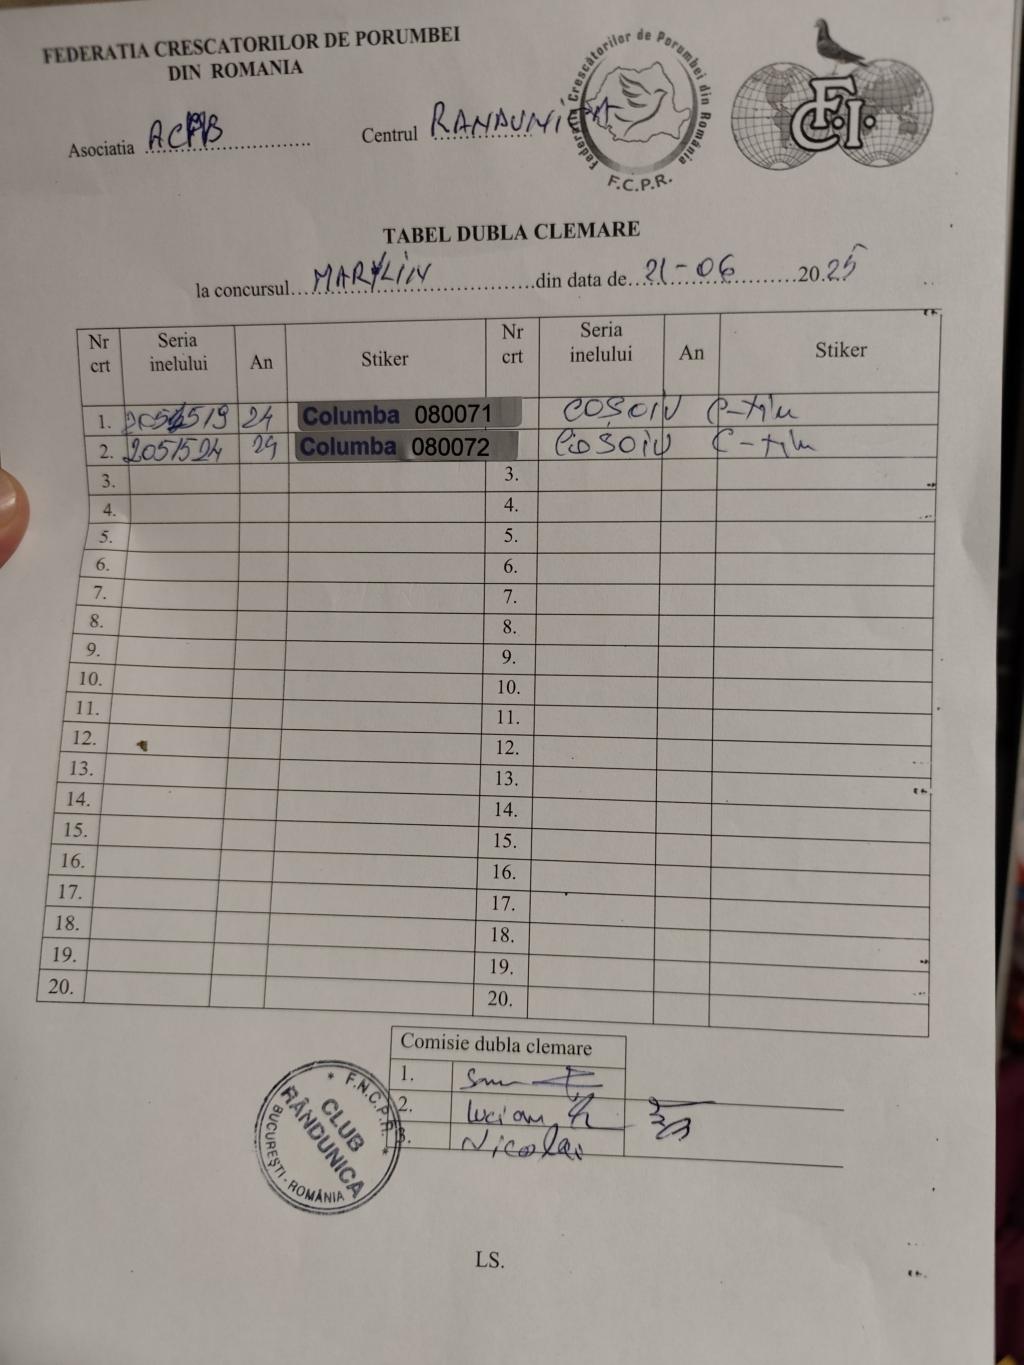 FEDERATIA CRESCATORILOR DE PORUMBEI
DIN ROMANIA
Federația Crescătorilor de Porumbei din România
F.C.P.R.
F.C.I.
Asociatia ACPB
Centrul RANDUNICA
TABEL DUBLA CLEMARE
la concursul MARYLIN din data de 21-06 2025
Nr crt Seria inelului An Stiker Nr crt Seria inelului An Stiker
1. 24 Columba 080071 COȘOIU C-tin
2. 2051524 24 Columba 080072 COȘOIU C-tin
3. 3.
4. 4.
5. 5.
6. 6.
7. 7.
8. 8.
9. 9.
10. 10.
11. 11.
12. 12.
13. 13.
14. 14.
15. 15.
16. 16.
17. 17.
18. 18.
19. 19.
20. 20.
Comisie dubla clemare
1.
2. Lucian
3. Nicolae
* F.N.C.P.R. *
CLUB
RÂNDUNICA
BUCUREȘTI - ROMÂNIA
LS.